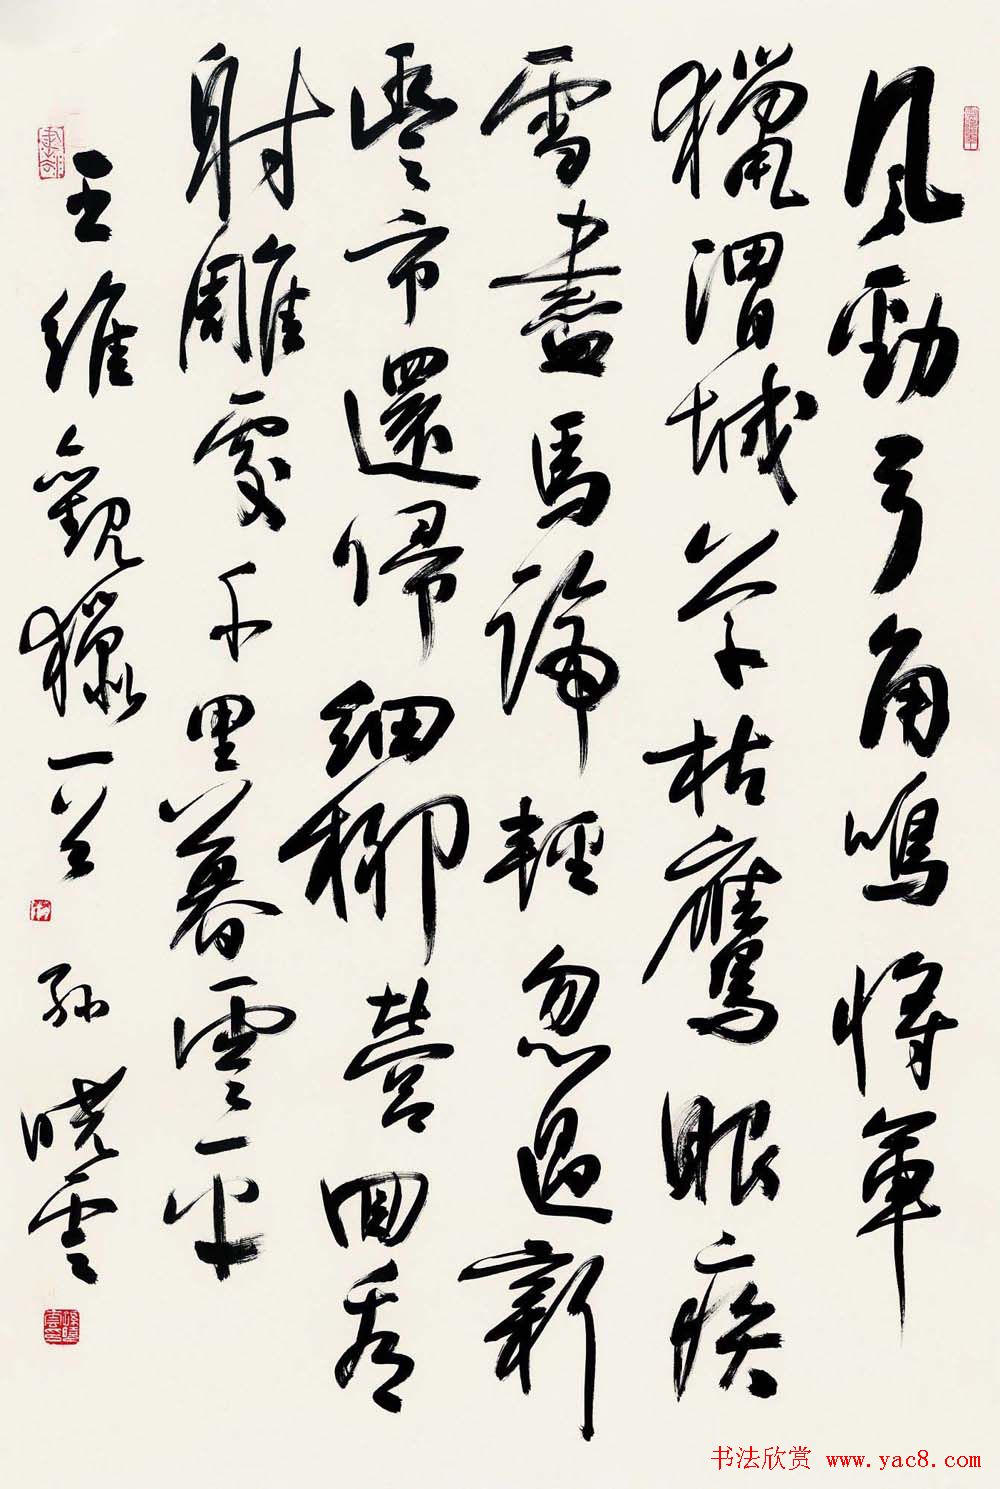 風勁弓角鳴將軍
獵渭城草枯鷹眼疾
雪盡馬蹄輕忽過新
豐市還歸細柳營回看
射雕處千里暮雲平
王維觀獵一首 孫曉雲
书法欣赏 www.yac8.com